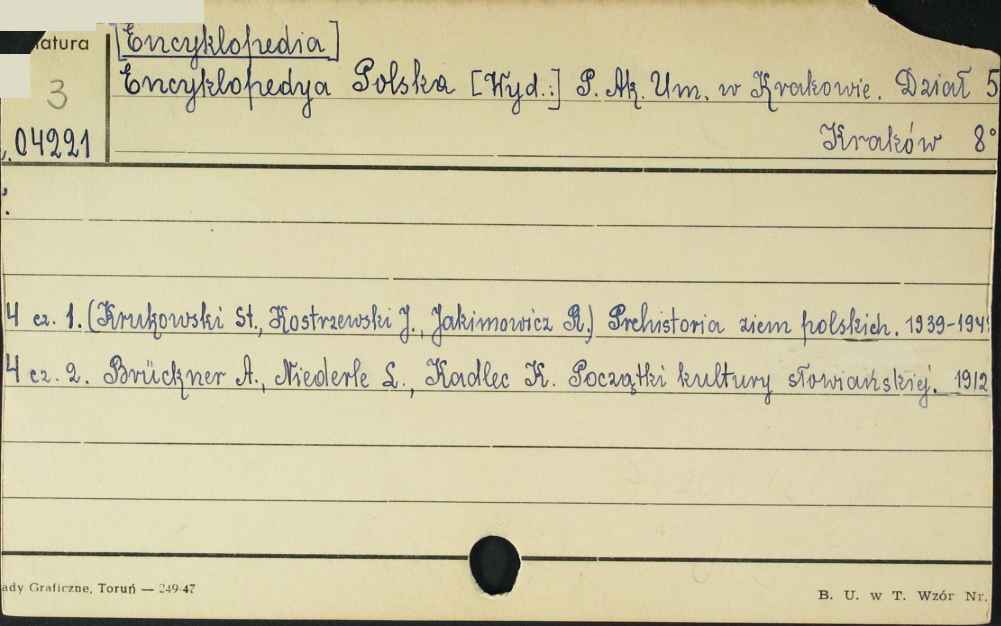 [Encyklopedia]
atura
Encyklopedya Polska [Wyd.:] P. Ak. Um. w Krakowie. Dział 5
3
04221
Kraków 8°
4 cz. 1. (Krukowski St., Kostrzewski J., Jakimowicz R.) Prehistoria ziem polskich. 1939-194
4 cz. 2. Brückner A., Niederle L., Kadlec K. Początki kultury słowiańskiej. 1912
ady Graficzne, Toruń — 249-47
B. U. w T. Wzór Nr.